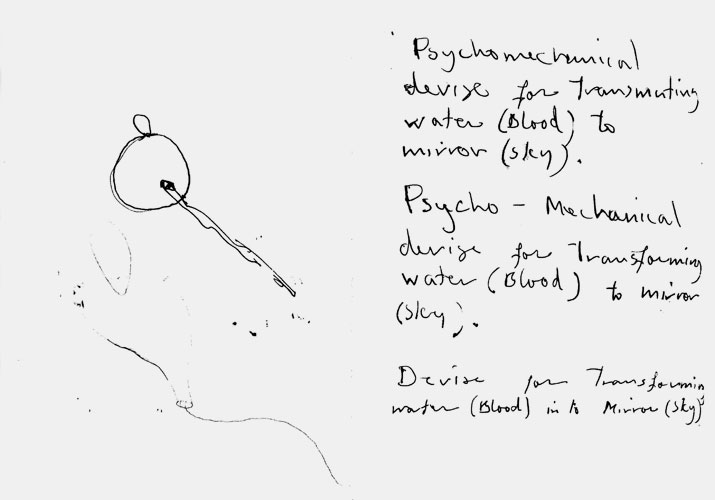 Psychomechanical
devise for Transmuting
water (Blood) to
mirror (sky).
Psycho - Mechanical
devise for Transforming
water (Blood) to mirror
(sky).
Devise for Transforming
water (Blood) in to Mirror (sky)